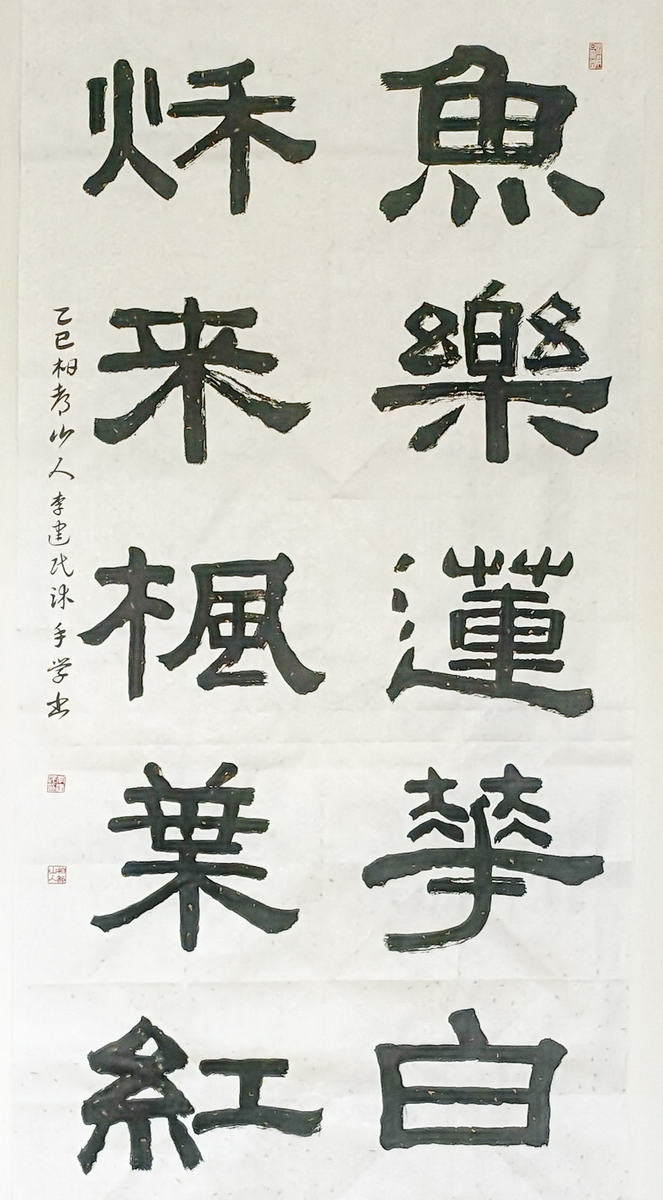 魚樂蓮華白
秌来楓葉紅
乙巳相考山人李建民沐手学书